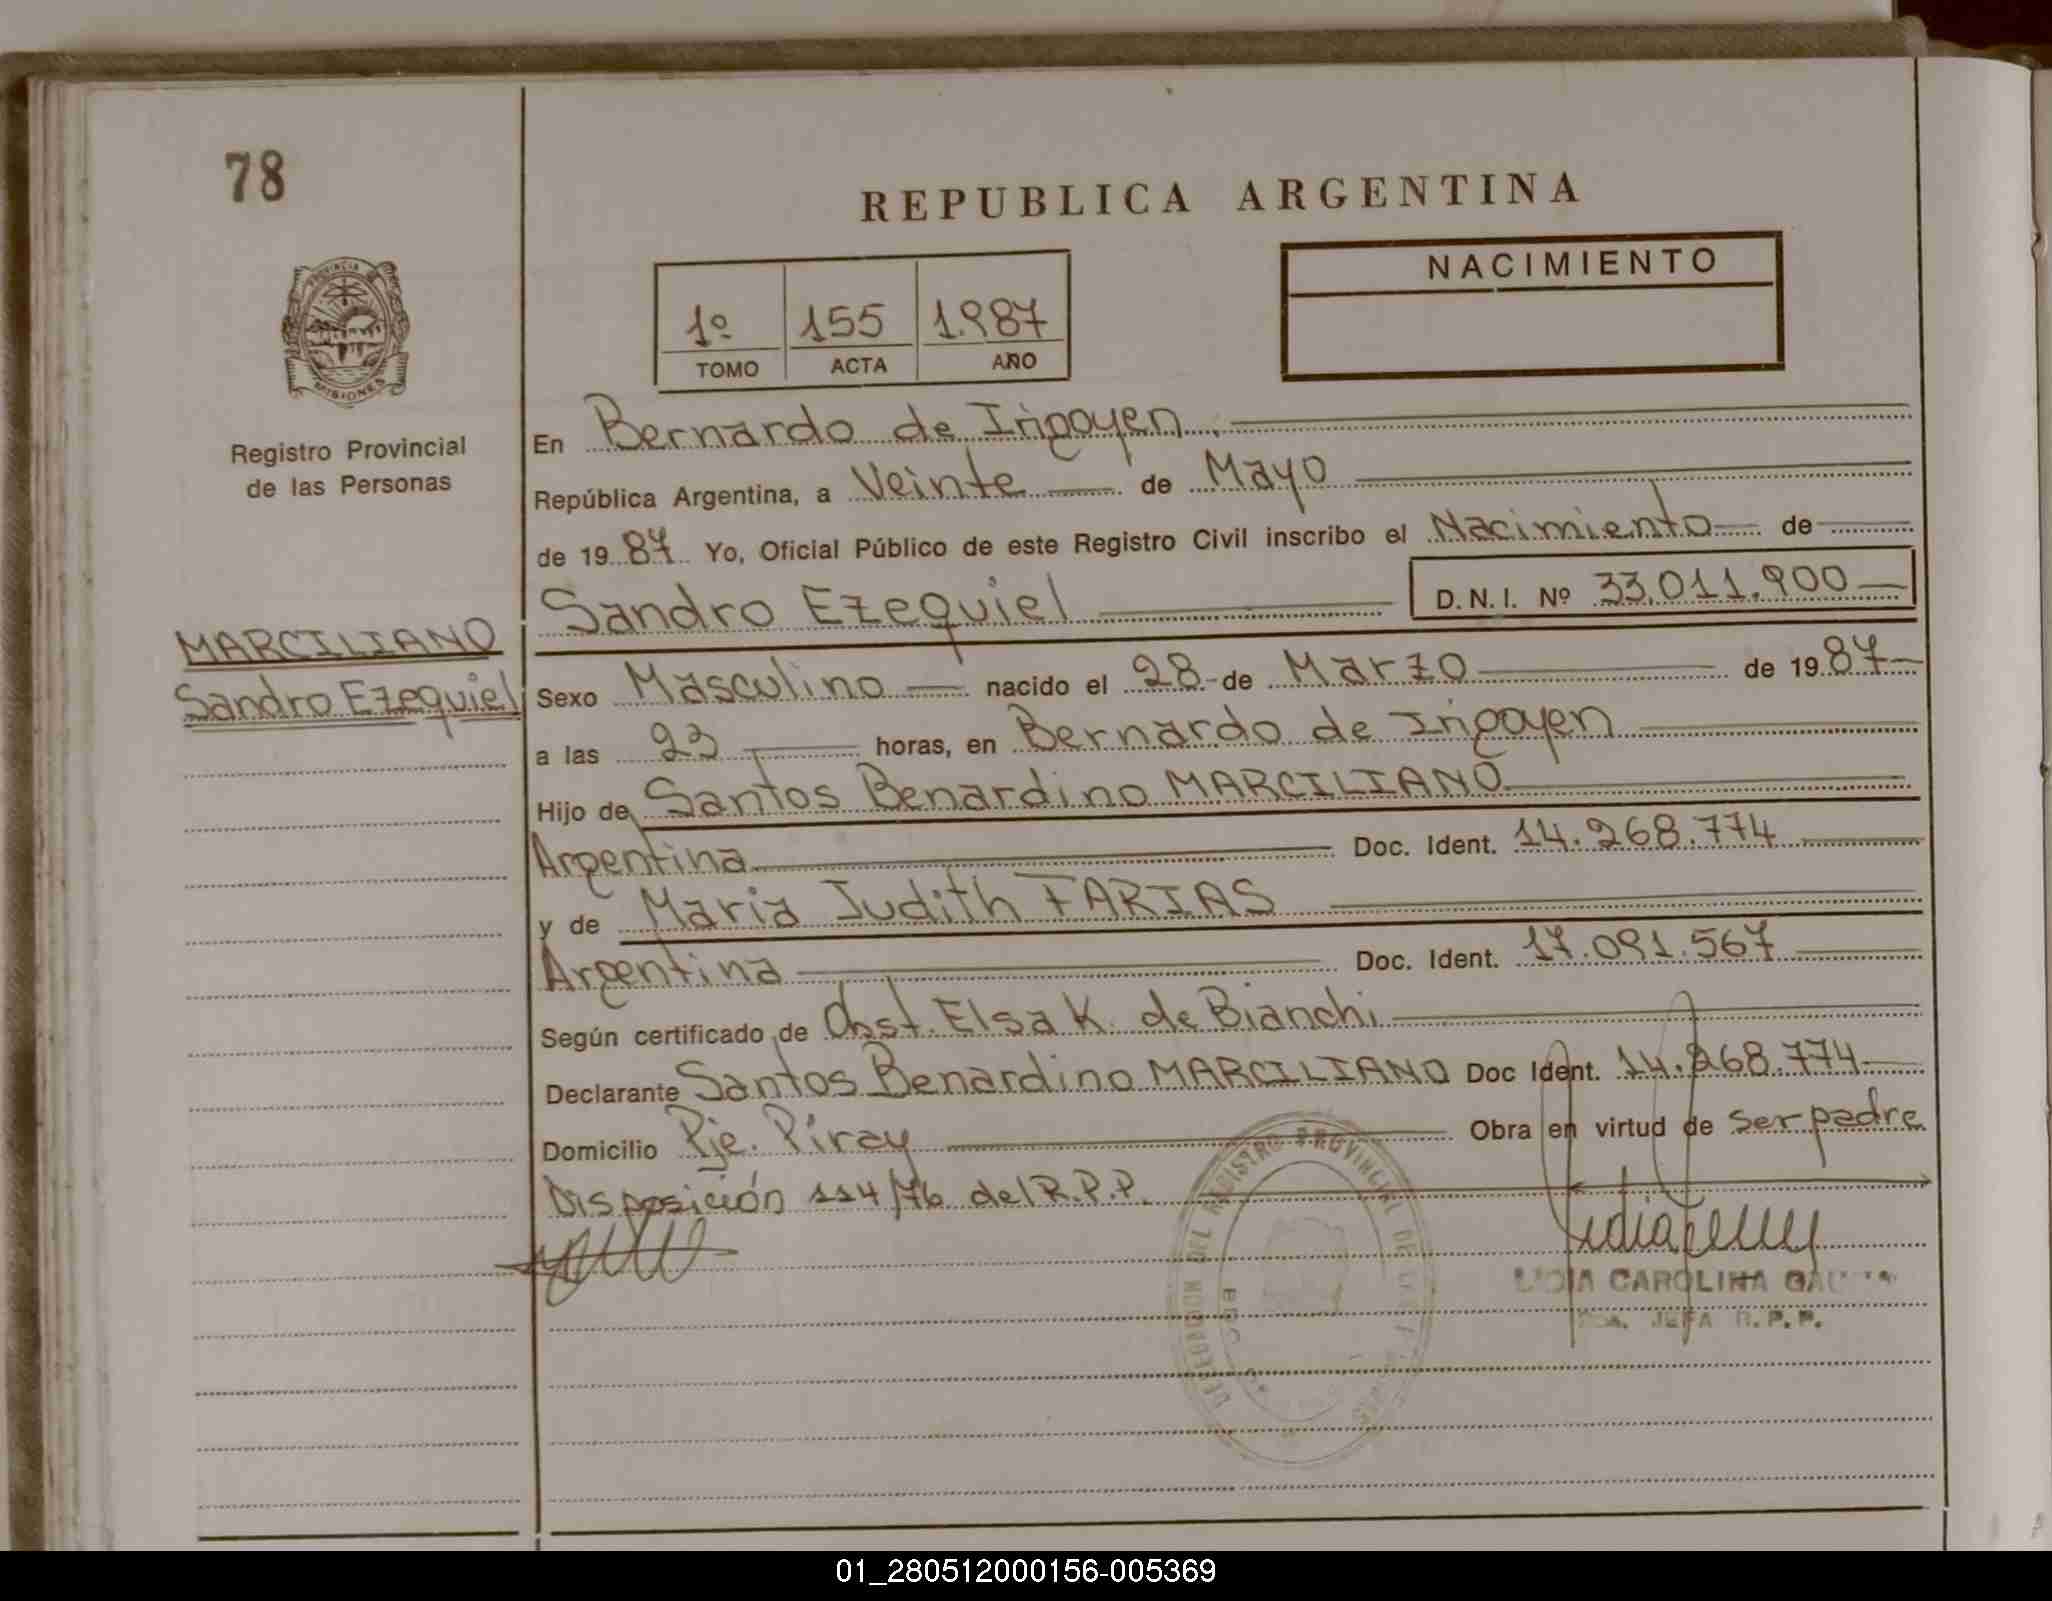 78
REPUBLICA ARGENTINA
PROVINCIA DE
MISIONES
Registro Provincial
de las Personas
MARCILIANO
Sandro Ezequiel
1º 155 1.987
TOMO ACTA AÑO
NACIMIENTO
En Bernardo de Irigoyen
República Argentina, a Veinte de Mayo
de 19 87 Yo, Oficial Público de este Registro Civil inscribo el Nacimiento de
Sandro Ezequiel D. N. I. Nº 33.011.900
Sexo Masculino nacido el 28 de Marzo de 19 87
a las 23 horas, en Bernardo de Irigoyen
Hijo de Santos Benardino MARCILIANO
Argentina Doc. Ident. 14.268.774
y de Maria Judith FARIAS
Argentina Doc. Ident. 17.091.567
Según certificado de Obst. Elsa K. de Bianchi
Declarante Santos Benardino MARCILIANO Doc Ident. 14.268.774
Domicilio Pje. Piray Obra en virtud de ser padre
Disposición 114/76 del R.P.P.
DELEGACION DEL REGISTRO PROVINCIAL DE
LIDIA CAROLINA
JEFA R.P.P.
01_280512000156-005369